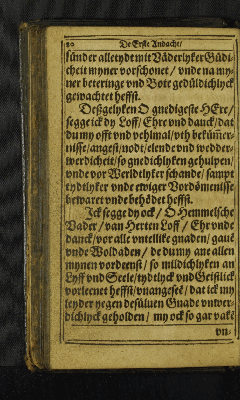 20 De Erste Andacht/
sünder alletydt mit Väderlyker Güdi-
cheit myner vorschonet / vnde na my-
ner beteringe vnd Bote gedüldichlyck
gewachtet heffst.
Deßgelyken O gnedigeste HEre/
segge ick dy Loff/ Ehre vnd danck/dat
du my offt vnd vehlmal/vth bekümer-
nisse/angest/nodt/elende vnd wedder-
werdicheit/so gnedichlyken gehulpen/
vnde vor Werldtlyker schande/ sampt
tydtlyker vnde ewiger Vordömenisse
bewaret vnde behödet heffst.
Ick segge dy ock / O Hemmelsche
Vader / van Herten Loff / Ehr vnde
danck/vor alle vntellike gnaden/ gaue
vnde Woldaden / de du my ane allen
mynen vordeenst / so mildichlyken an
Lyff vnd Seele/tydtlyck vnd Geistlick
vorleenet heffst/vnangeseē/ dat ick my
leyder yegen desüluen Gnade vnwer-
dichlyck geholden / my ock so gar vakē
vn-